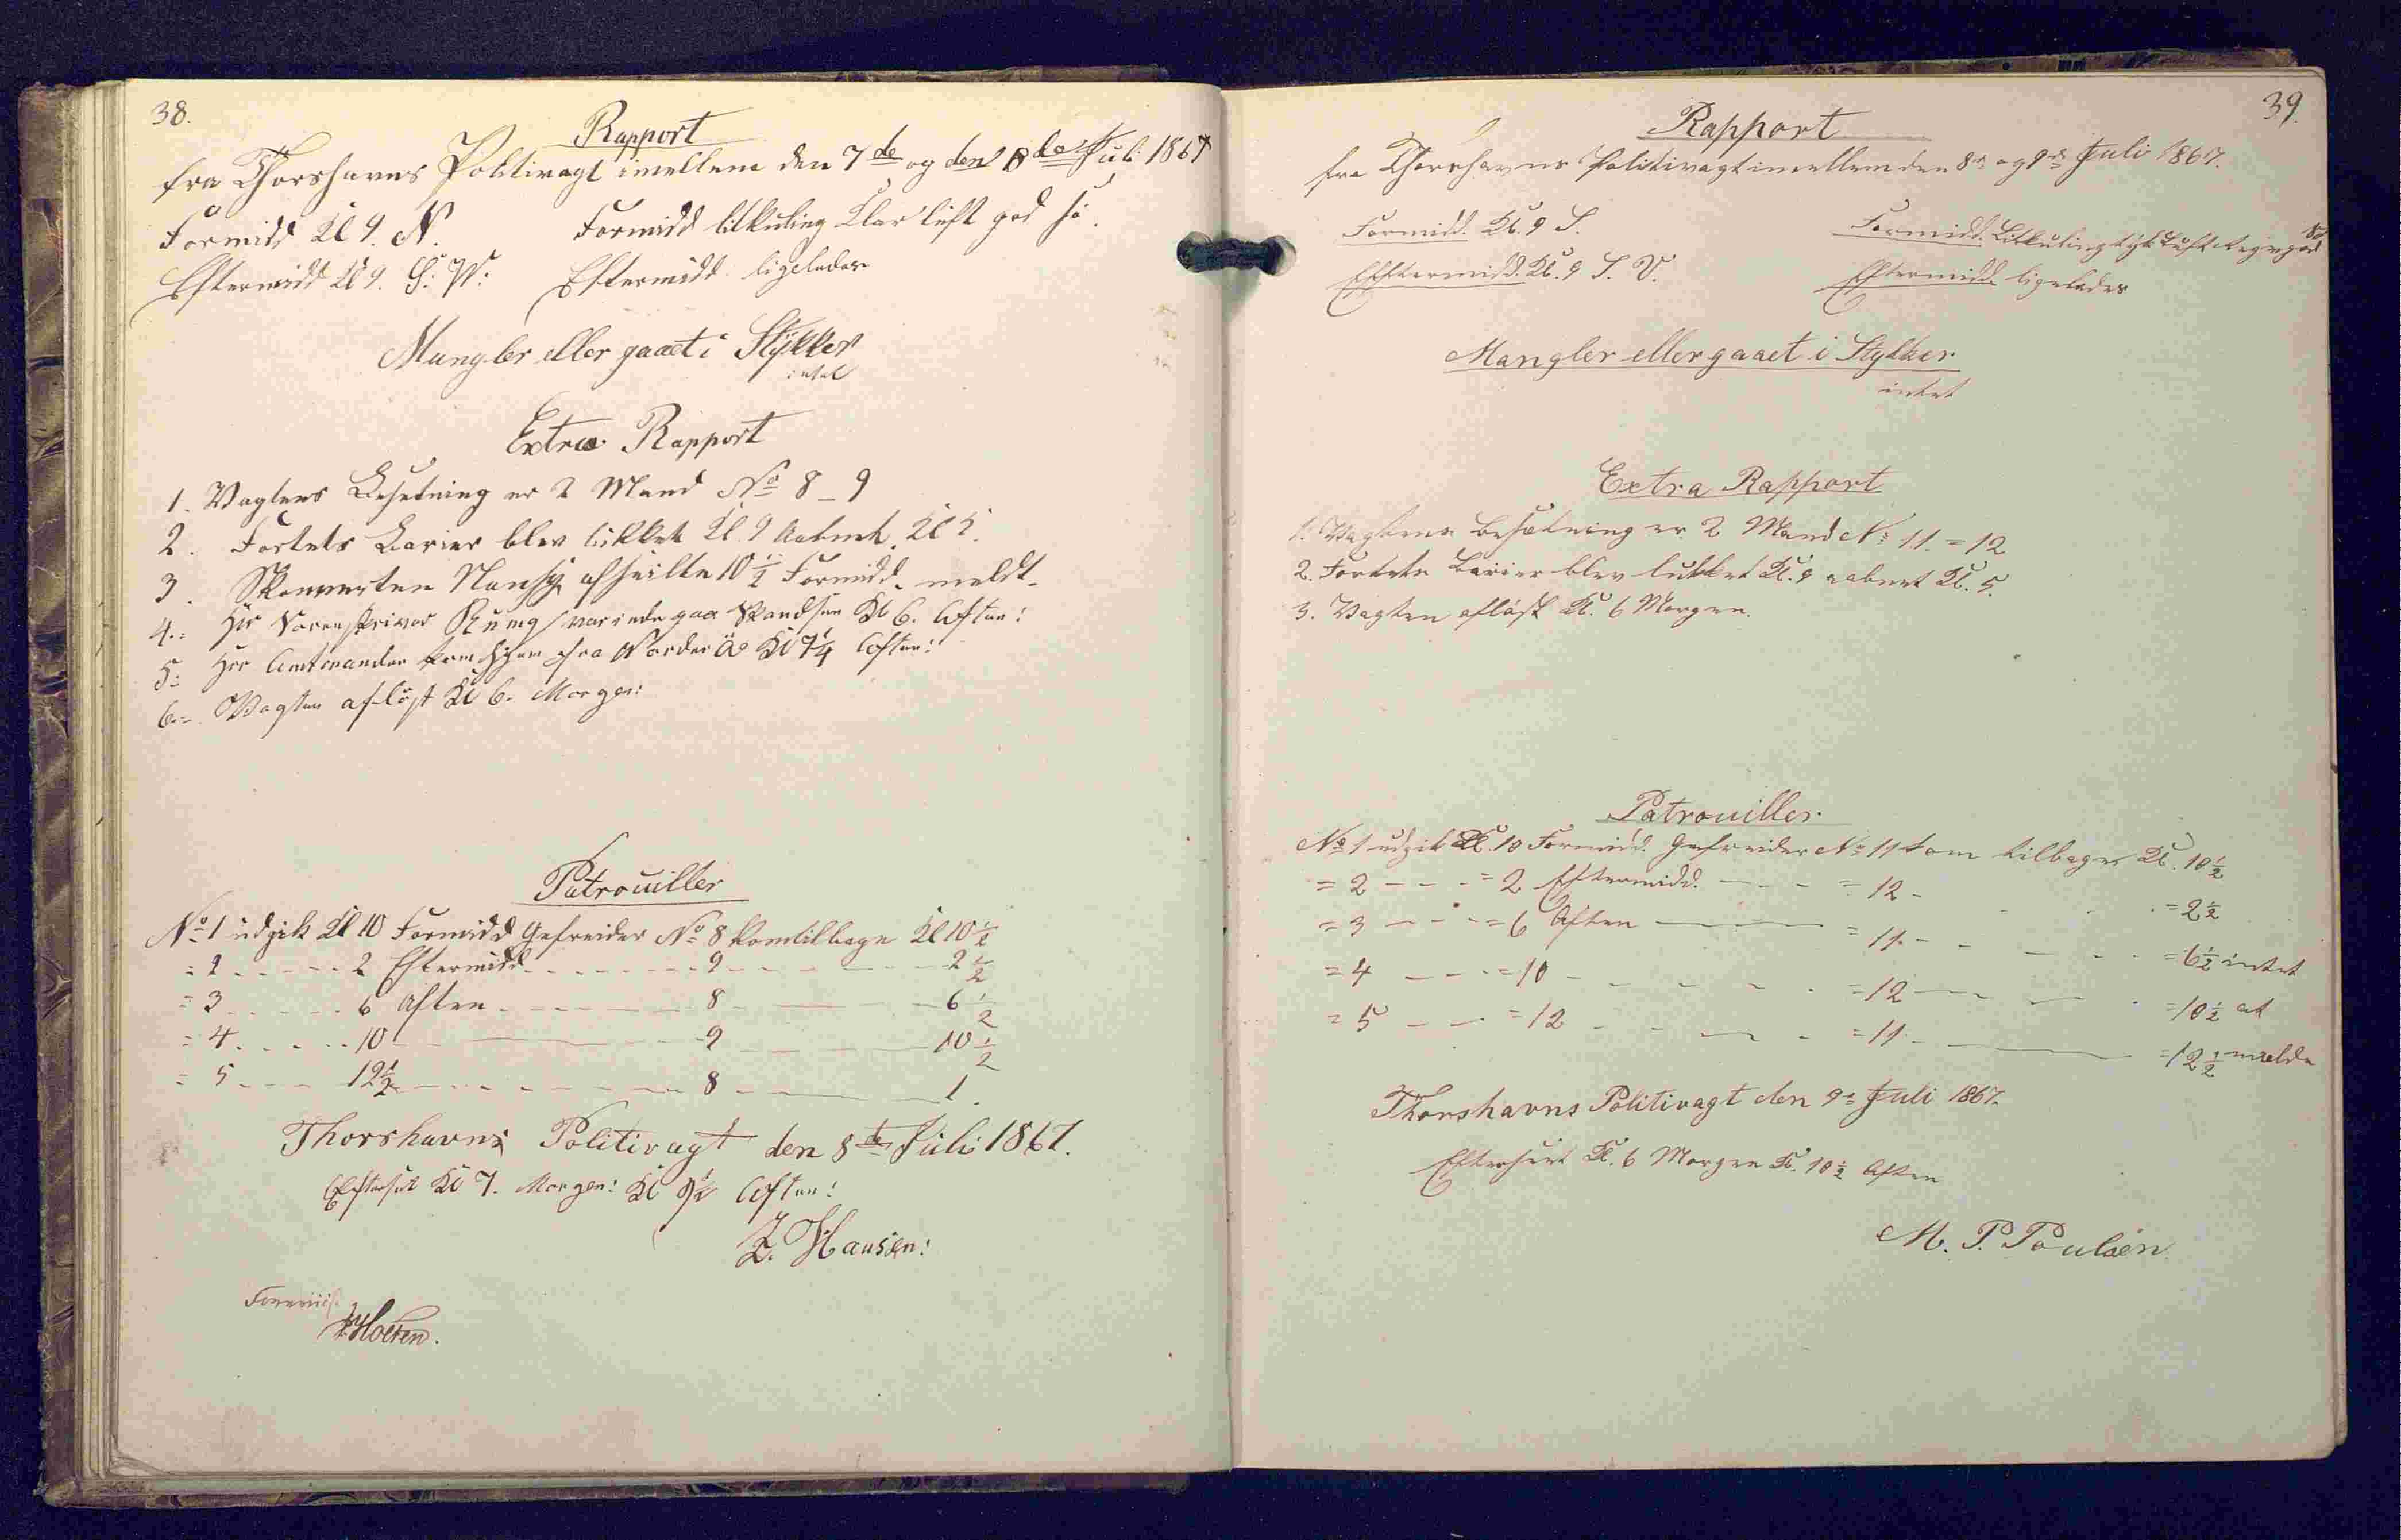 38.
Rapport
fra Thorshavns Politivagt imellem den 7de og den 8de Juli 1867
Formidd Kl 9. N.
Formidd litkuling Klar luft god sö.
Eftermidd Kl 9. S. W:
Eftermidd ligeledes
Mangler eller gaaet i Stÿkker
intet
Extra Rapport
1. Vagtens Besetning er 2 Mand No 8 - 9
2. Fortets Barier blev lukket Kl 9 Aabnet Kl 5.
3. Skonnerten Nancy afseilte 10 1/2 Formidd. meldt.
4. Hr Sorenskriver var inde paa Skandsen Kl 6. Aften:
5: Hrr Amtmanden kom hjem fra Norder Ö Kl 7 1/4 Aften:
6. Vagten aflöst Kl 6. Morgen:
Patrouiller
No 1 udgik Kl 10 Formidd Gefreider No 8 kom tilbage Kl 10 1/2
= 2 - - - - - 2 Eftermidd - - - - - - - 9 - - - - - - 2 1/2
= 3 - - - - - 6 Aften - - - - - - 8 - - - - 6 1/2
= 4 - - - - - 10 - - - - - - 9 - - - - 10 1/2
= 5 - - - 12 1/2 - - - - - - - 8 - - - - 1.
Thorshavns Politivagt den 8de Juli 1867.
Efterseet Kl 7. Morgen: Kl 9 1/2 Aften:
Z. Hansen:
Foreviist
Holten.
39.
Rapport
fra Thorshavns Politivagt imellem den 8de og 9de Juli 1867.
Formidd. Kl. 9 S.
Formidd. Litkuling tyk Luft Regn god Sö
Efthermidd. Kl. 9 S. V.
Eftermidd. ligeledes
Mangler eller gaaet i Stykker
intet
Extra Rapport
1. Vagtens Besætning er 2 Mand No 11. = 12
2. Fortets Barier blev lukket Kl. 9 aabnet Kl. 5.
3. Vagten aflöst Kl. 6 Morgen.
Patrouiller
No 1 udgik Kl. 10 Formidd. Gefreider No 11 kom tilbage Kl. 10 1/2
= 2 - - - = 2 Eftermidd. - - - = 12 - - - = 2 1/2
= 3 - - - = 6 Aften - - - = 11 - - - = 6 1/2 intet
= 4 - - - = 10 - - - - = 12 - - - = 10 1/2 at
= 5 - - = 12 - - - - = 11 - - = 12 1/2 melde
Thorshavns Politivagt den 9de Juli 1867.
Efterseet Kl. 6 Morgen Kl. 10 1/2 Aften
M. P. Poulsen.